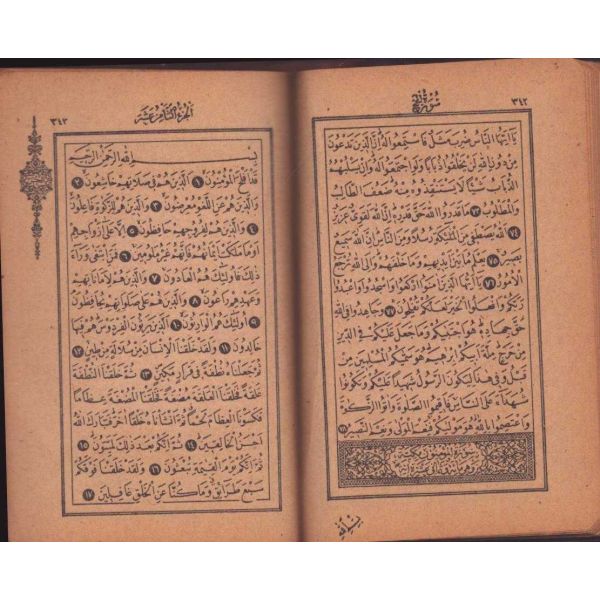 ٣٤٢
سورة الحج
يا ايها الناس ضرب مثل فاستمعوا له ان الذين تدعون
من دون الله لن يخلقوا ذبابا ولو اجتمعوا له وان يسلبهم
الذباب شيئا لا يستنقذوه منه ضعف الطالب
والمطلوب ٧٣ ما قدروا الله حق قدره ان الله لقوى عزيز
٧٤ الله يصطفى من الملئكة رسلا ومن الناس ان الله سميع
بصير ٧٥ يعلم ما بين ايديهم وما خلفهم والى الله ترجع
الامور ٧٦ يا ايها الذين امنوا اركعوا واسجدوا واعبدوا
ربكم وافعلوا الخير لعلكم تفلحون ٧٧ وجاهدوا فى الله
حق جهاده هو اجتبيكم وما جعل عليكم فى الدين
من حرج ملة ابيكم ابرهيم هو سميكم المسلمين من
قبل وفى هذا ليكون الرسول شهيدا عليكم وتكونوا
شهداء على الناس فاقيموا الصلوة واتوا الزكوة
واعتصموا بالله هو موليكم فنعم المولى ونعم النصير ٧٨
سورة المؤمنون مكية
بسم الله
الجزء الثامن عشر
٣٤٣
بسم الله الرحمن الرحيم
قد افلح المؤمنون ١ الذين هم فى صلاتهم خاشعون ٢
والذين هم عن اللغو معرضون ٣ والذين هم للزكوة فاعلون
٤ والذين هم لفروجهم حافظون ٥ الا على ازواجهم
او ما ملكت ايمانهم فانهم غير ملومين ٦ فمن ابتغى وراء
ذلك فاولئك هم العادون ٧ والذين هم لاماناتهم
وعهدهم راعون ٨ والذين هم على صلواتهم يحافظون
٩ اولئك هم الوارثون ١٠ الذين يرثون الفردوس هم فيها
خالدون ١١ ولقد خلقنا الانسان من سلالة من طين ١٢
ثم جعلناه نطفة فى قرار مكين ١٣ ثم خلقنا النطفة
علقة فخلقنا العلقة مضغة فخلقنا المضغة عظاما
فكسونا العظام لحما ثم انشاناه خلقا اخر فتبارك الله
احسن الخالقين ١٤ ثم انكم بعد ذلك لميتون ١٥
ثم انكم يوم القيمة تبعثون ١٦ ولقد خلقنا فوقكم
سبع طرائق وما كنا عن الخلق غافلين ١٧